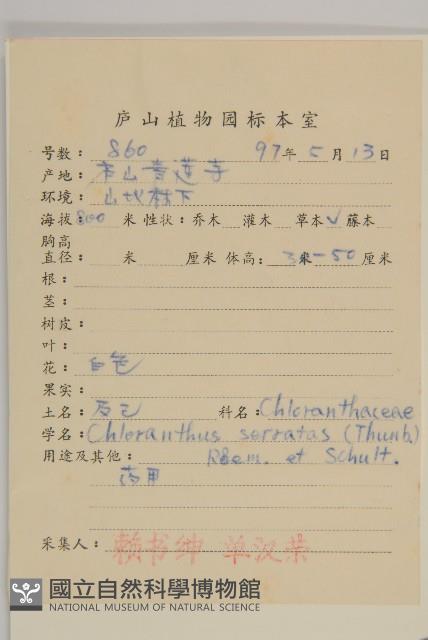 庐山植物园标本室
号数: 860 97年 5 月 13 日
产地: 庐山青莲寺
环境: 山坡林下
海拔: 800 米 性状: 乔木 灌木 草本 √ 藤本
胸高
直径: 米 厘米 体高: 厘米
根:
茎:
树皮:
叶:
花: 白色
果实:
土名: 及己 科名: Chloranthaceae
学名: Chloranthus serratas (Thunb.)
用途及其他: Röem. et Schult.
药用
采集人: 赖书绅 单汉荣
國立自然科學博物館
NATIONAL MUSEUM OF NATURAL SCIENCE